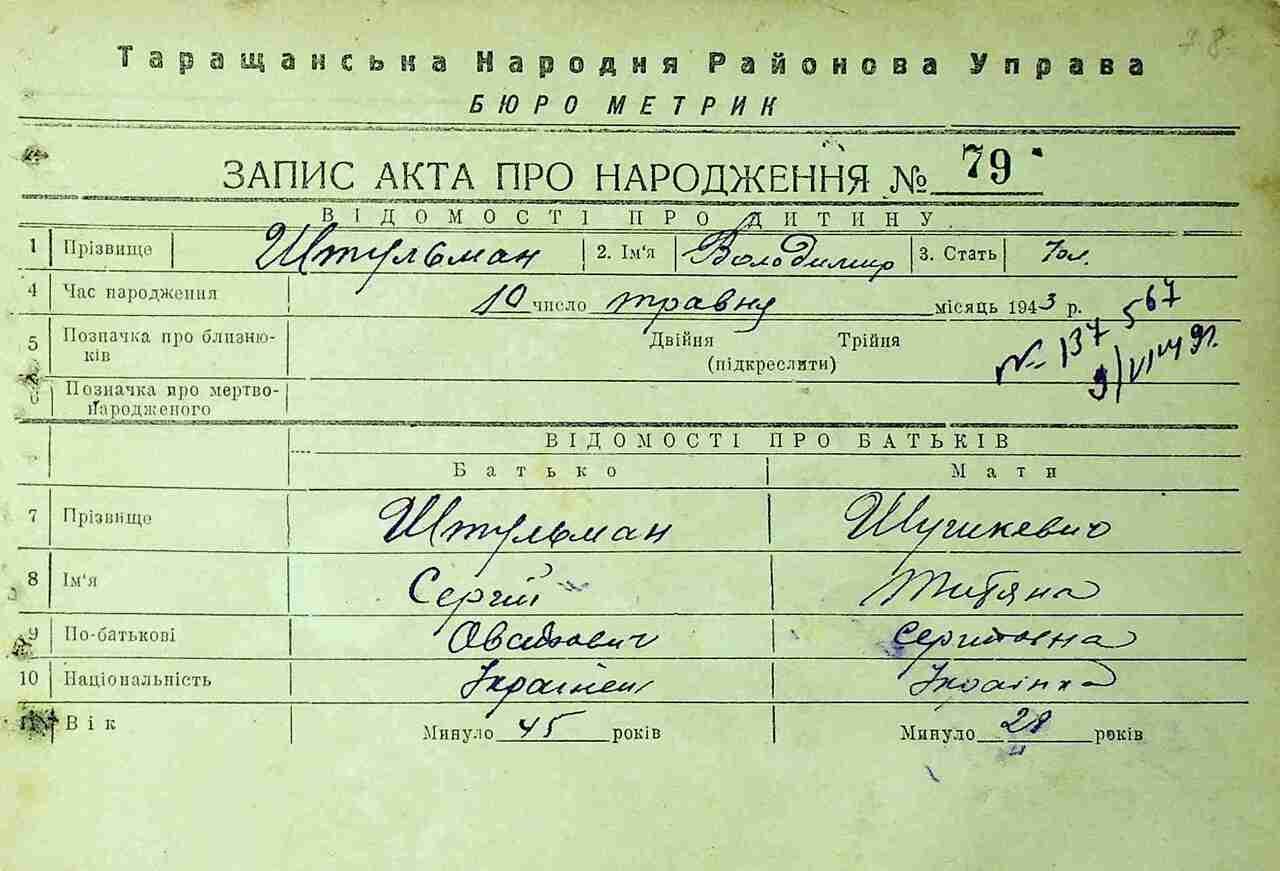 Таращанська Народня Районова Управа
БЮРО МЕТРИК
ЗАПИС АКТА ПРО НАРОДЖЕННЯ № 79
ВІДОМОСТІ ПРО ДИТИНУ
1 Прізвище Штульман 2. Ім'я Володимир 3. Стать Чол.
4 Час народження 10 число травня місяць 1943 р.
5 Позначка про близню-ків Двійня Трійня
(підкреслити)
№ 137567
6 Позначка про мертво-народженого
ВІДОМОСТІ ПРО БАТЬКІВ
Батько Мати
7 Прізвище Штульман
8 Ім'я Сергій Титяна
9 По-батькові Сергіївна
10 Національність Українец Українка
11 Вік Минуло 45 років Минуло 28 років